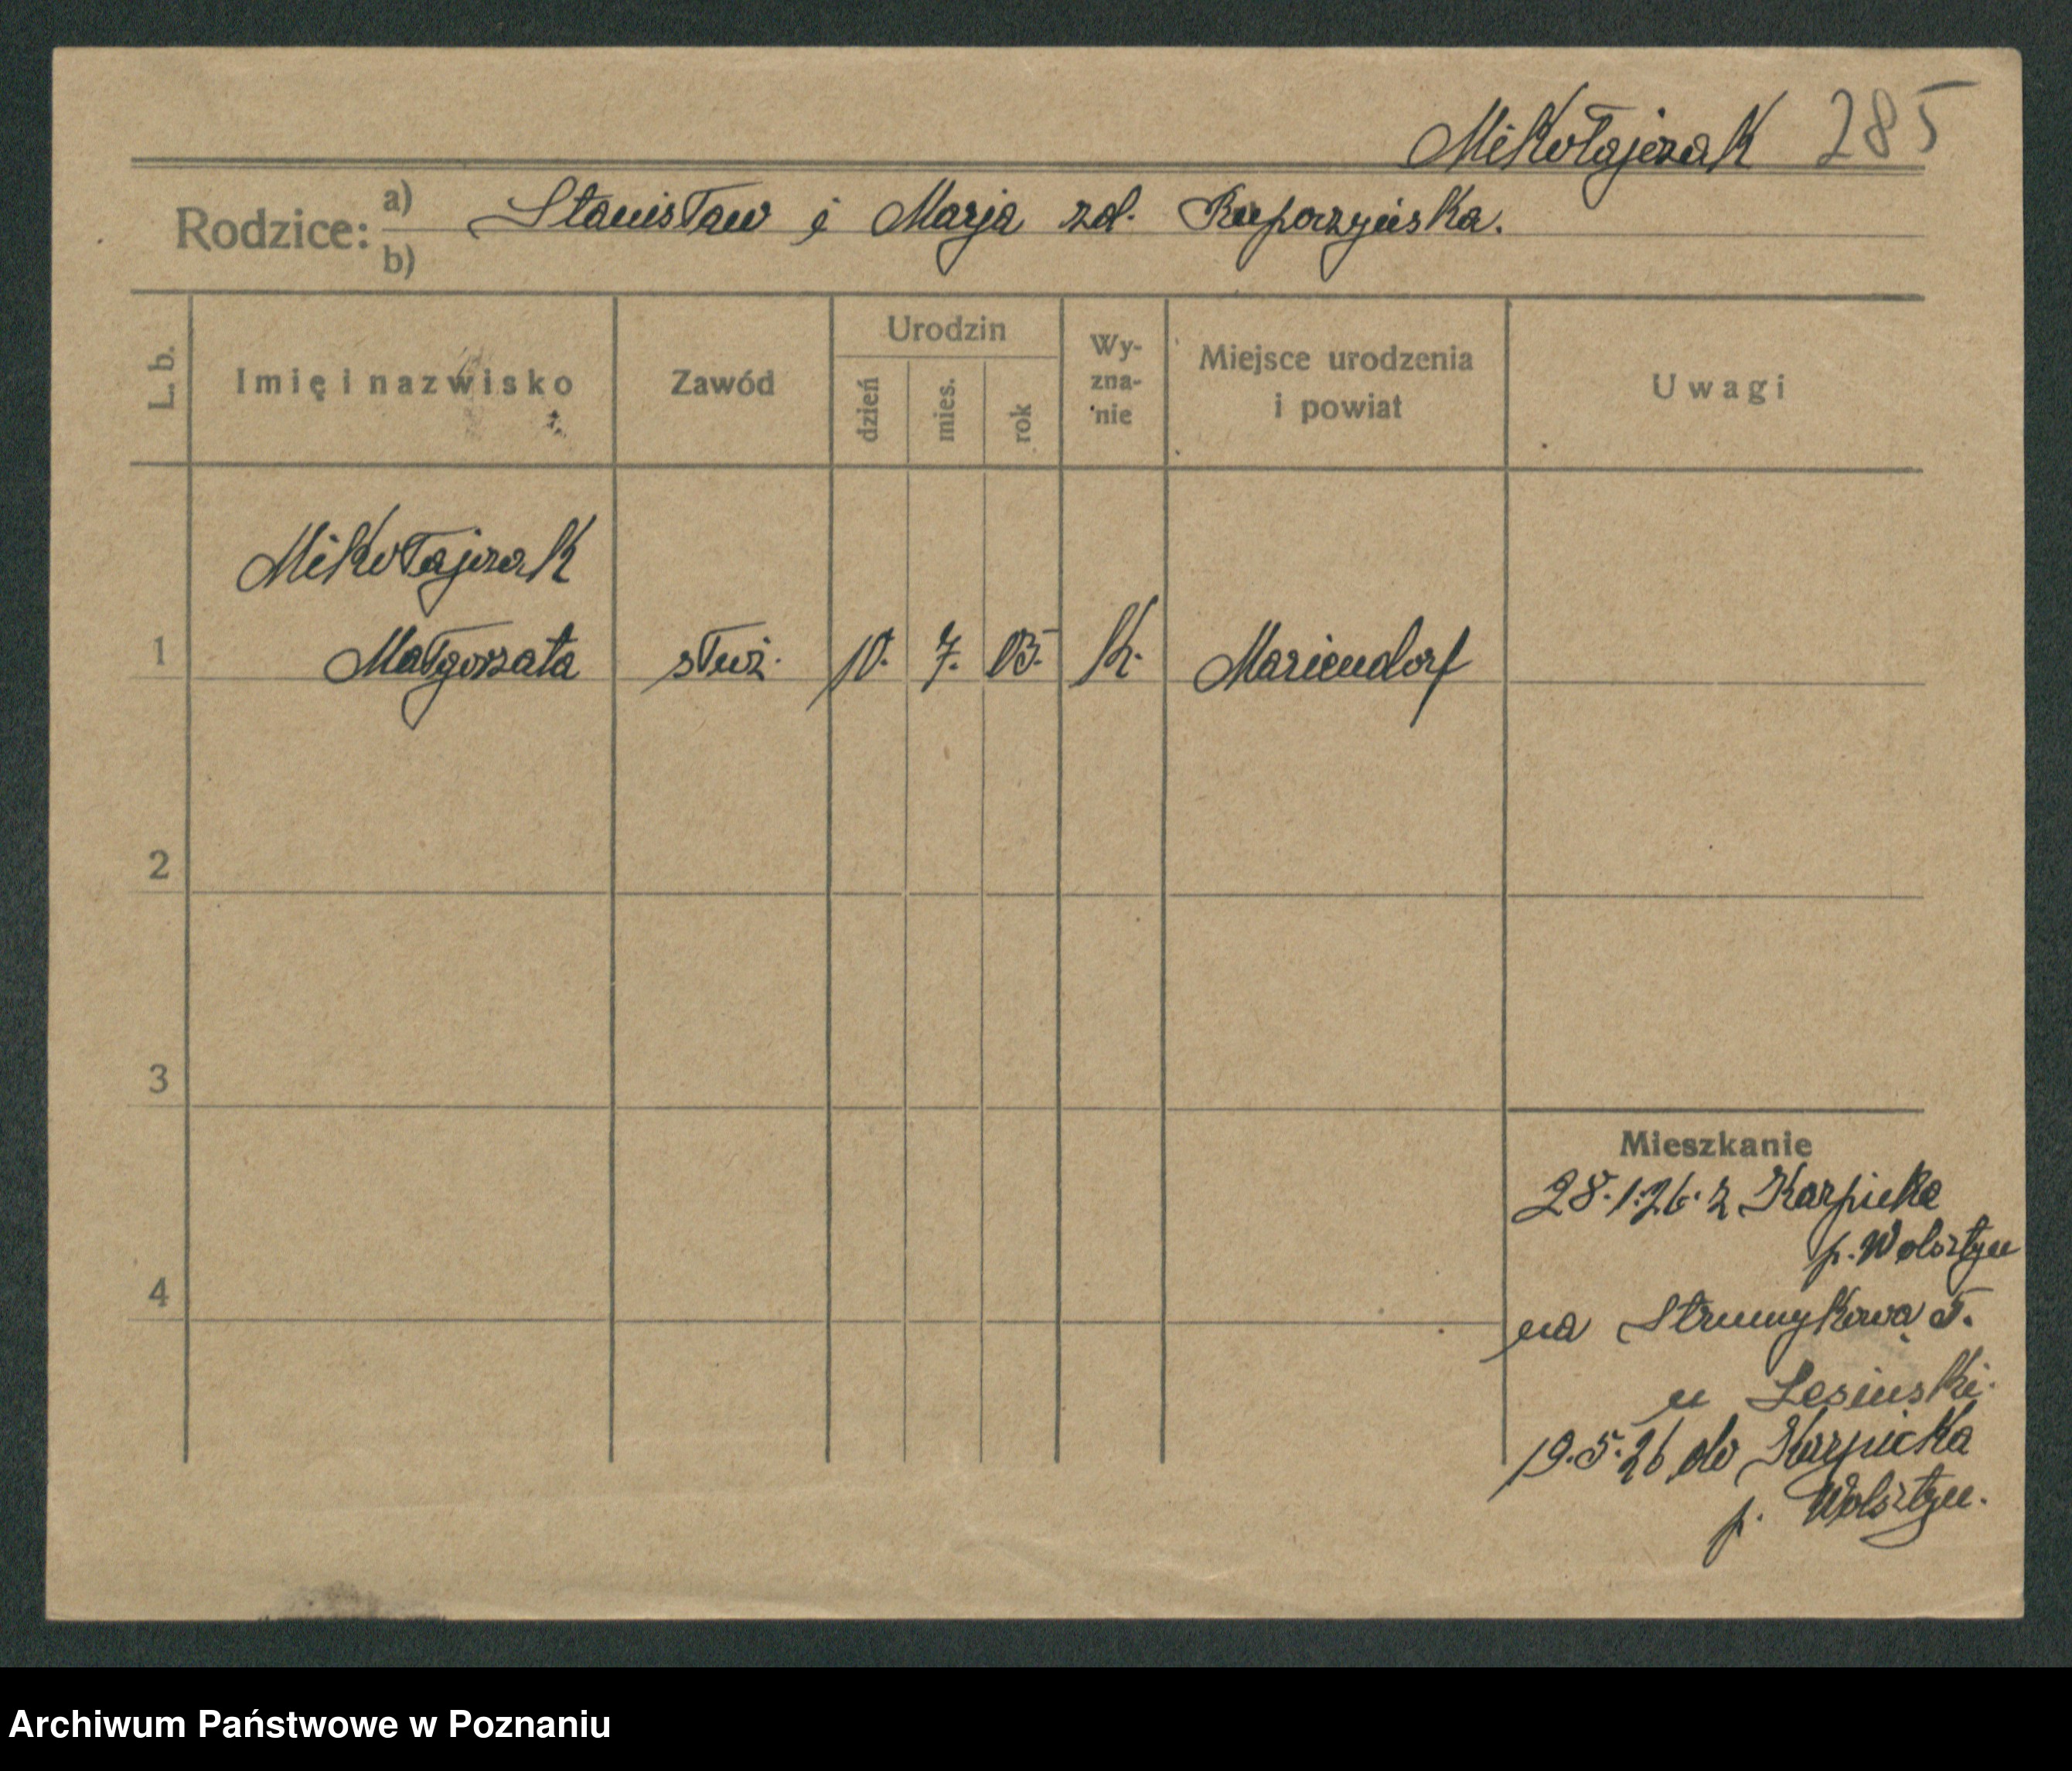 Mikołajczak 285
Rodzice: a) Stanisław i Marja zd.
b)
L. b.
Imię i nazwisko
Zawód
Urodzin
dzień
mies.
rok
Wy-
zna-
nie
Miejsce urodzenia
i powiat
Uwagi
Mikołajczak
1 Małgorzata służ. 10. 7. 05. K. Mariendorf
2
3
4
Mieszkanie
28.1.26. z Karpicka
p. Wolsztyn
na Strumykowa 5.
u Lesinski.
19.5.26 do Karpicka
p. Wolsztyn.
Archiwum Państwowe w Poznaniu